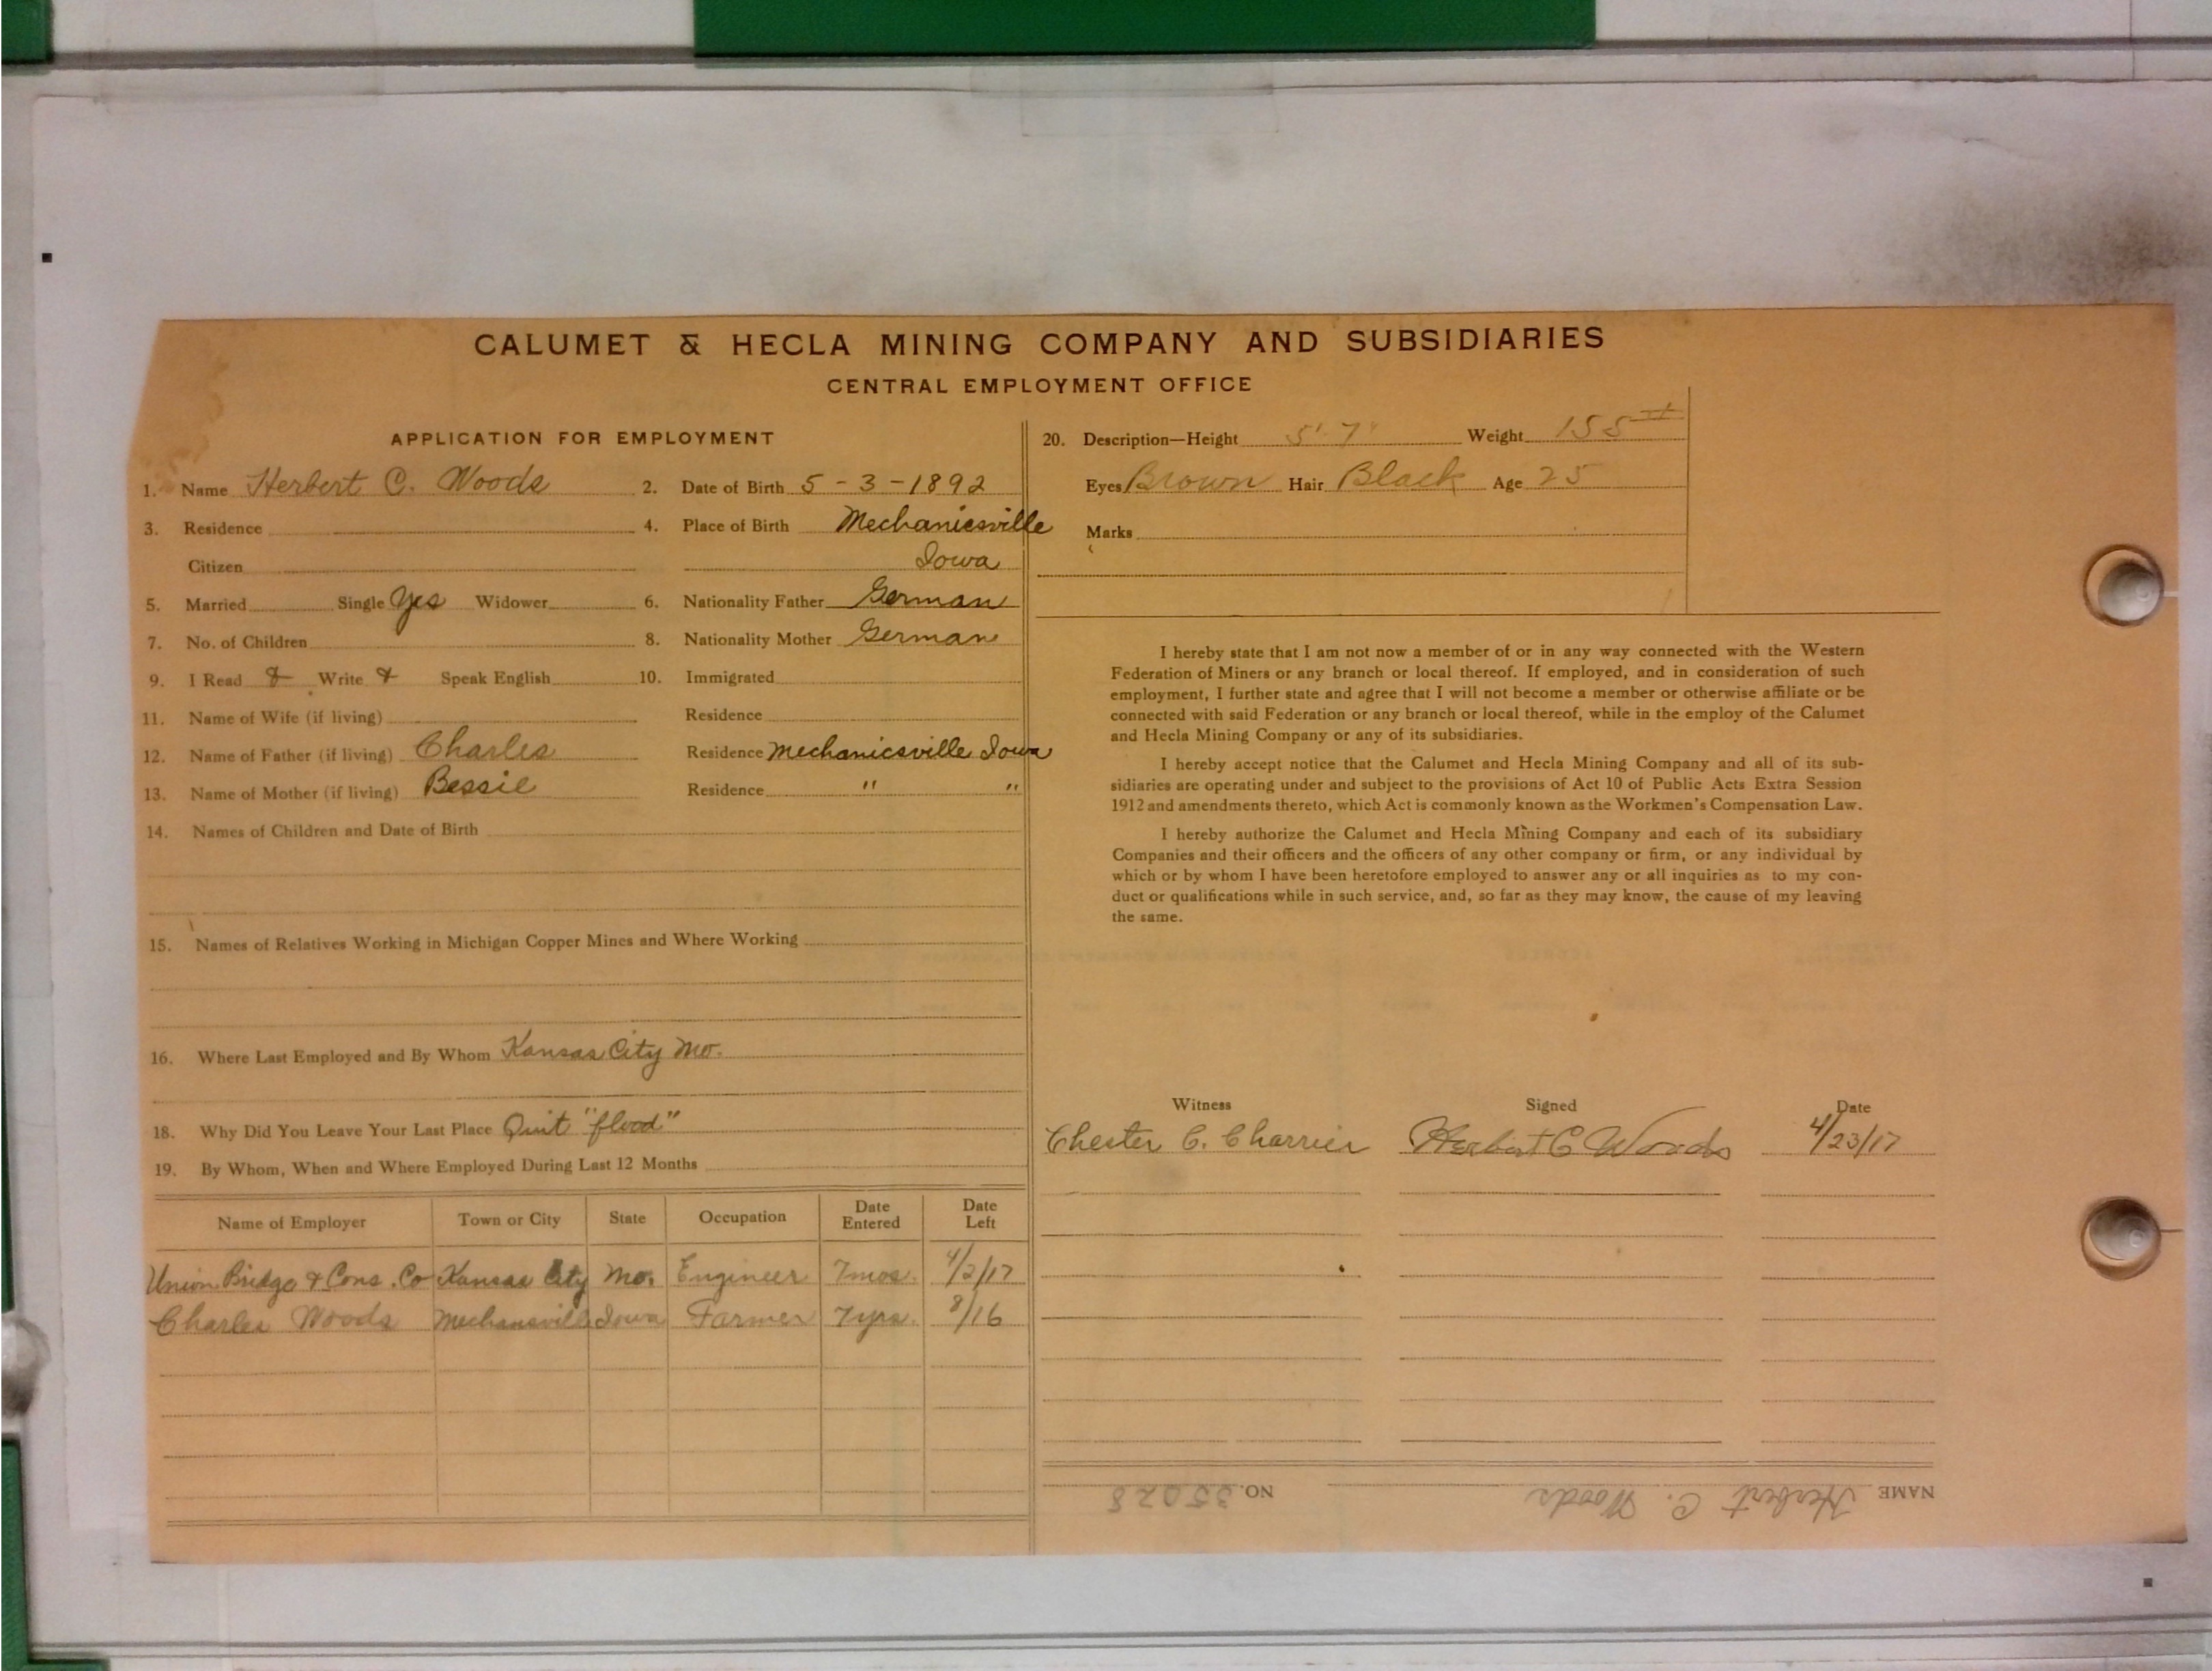 CALUMET & HECLA MINING COMPANY AND SUBSIDIARIES
CENTRAL EMPLOYMENT OFFICE
APPLICATION FOR EMPLOYMENT
1. Name Herbert C. Woods 2. Date of Birth 5-3-1892
3. Residence 4. Place of Birth Mechanicsville
Citizen Iowa
5. Married Single Yes Widower 6. Nationality Father German
7. No. of Children 8. Nationality Mother German
9. I Read & Write & Speak English 10. Immigrated
11. Name of Wife (if living) Residence
12. Name of Father (if living) Charles Residence Mechanicsville Iowa
13. Name of Mother (if living) Bessie Residence " "
14. Names of Children and Date of Birth
15. Names of Relatives Working in Michigan Copper Mines and Where Working
16. Where Last Employed and By Whom Kansas City Mo.
18. Why Did You Leave Your Last Place Quit "flood"
19. By Whom, When and Where Employed During Last 12 Months
Name of Employer Town or City State Occupation Date Entered Date Left
Union Bridge & Cons. Co Kansas City Mo. Engineer 7 mos. 4/2/17
Charles Woods Mechansville Iowa Farmer 7 yrs. 8/16
20. Description—Height 5' 7" Weight 155#
Eyes Brown Hair Black Age 25
Marks
I hereby state that I am not now a member of or in any way connected with the Western
Federation of Miners or any branch or local thereof. If employed, and in consideration of such
employment, I further state and agree that I will not become a member or otherwise affiliate or be
connected with said Federation or any branch or local thereof, while in the employ of the Calumet
and Hecla Mining Company or any of its subsidiaries.
I hereby accept notice that the Calumet and Hecla Mining Company and all of its sub-
sidiaries are operating under and subject to the provisions of Act 10 of Public Acts Extra Session
1912 and amendments thereto, which Act is commonly known as the Workmen's Compensation Law.
I hereby authorize the Calumet and Hecla Mining Company and each of its subsidiary
Companies and their officers and the officers of any other company or firm, or any individual by
which or by whom I have been heretofore employed to answer any or all inquiries as to my con-
duct or qualifications while in such service, and, so far as they may know, the cause of my leaving
the same.
Witness Signed Date
Chester C. Charrier Herbert C Woods 4/23/17
NAME Herbert C. Woods NO. 35028